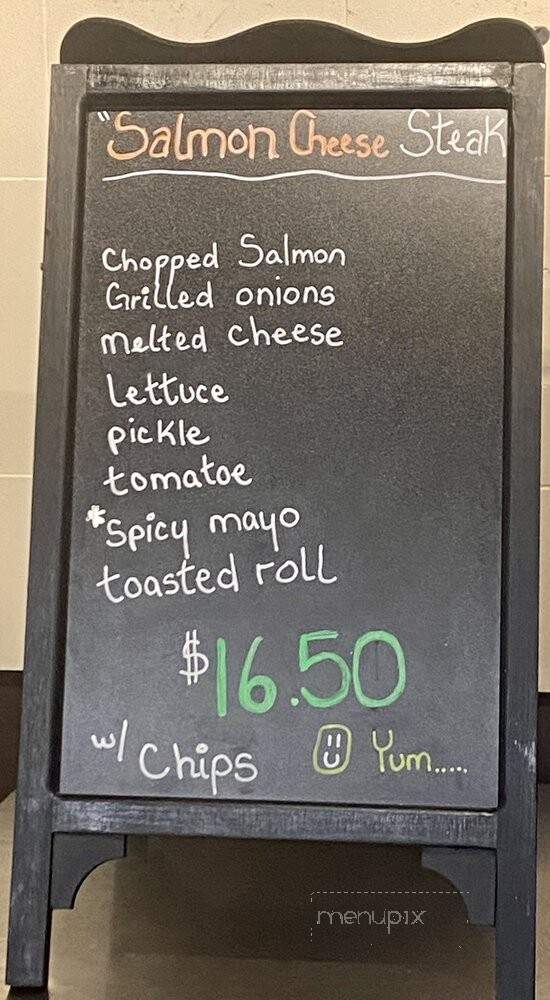 "Salmon Cheese Steak
Chopped Salmon
Grilled onions
melted cheese
Lettuce
pickle
tomatoe
*Spicy mayo
toasted roll
$16.50
w/ Chips Yum.....
menupix